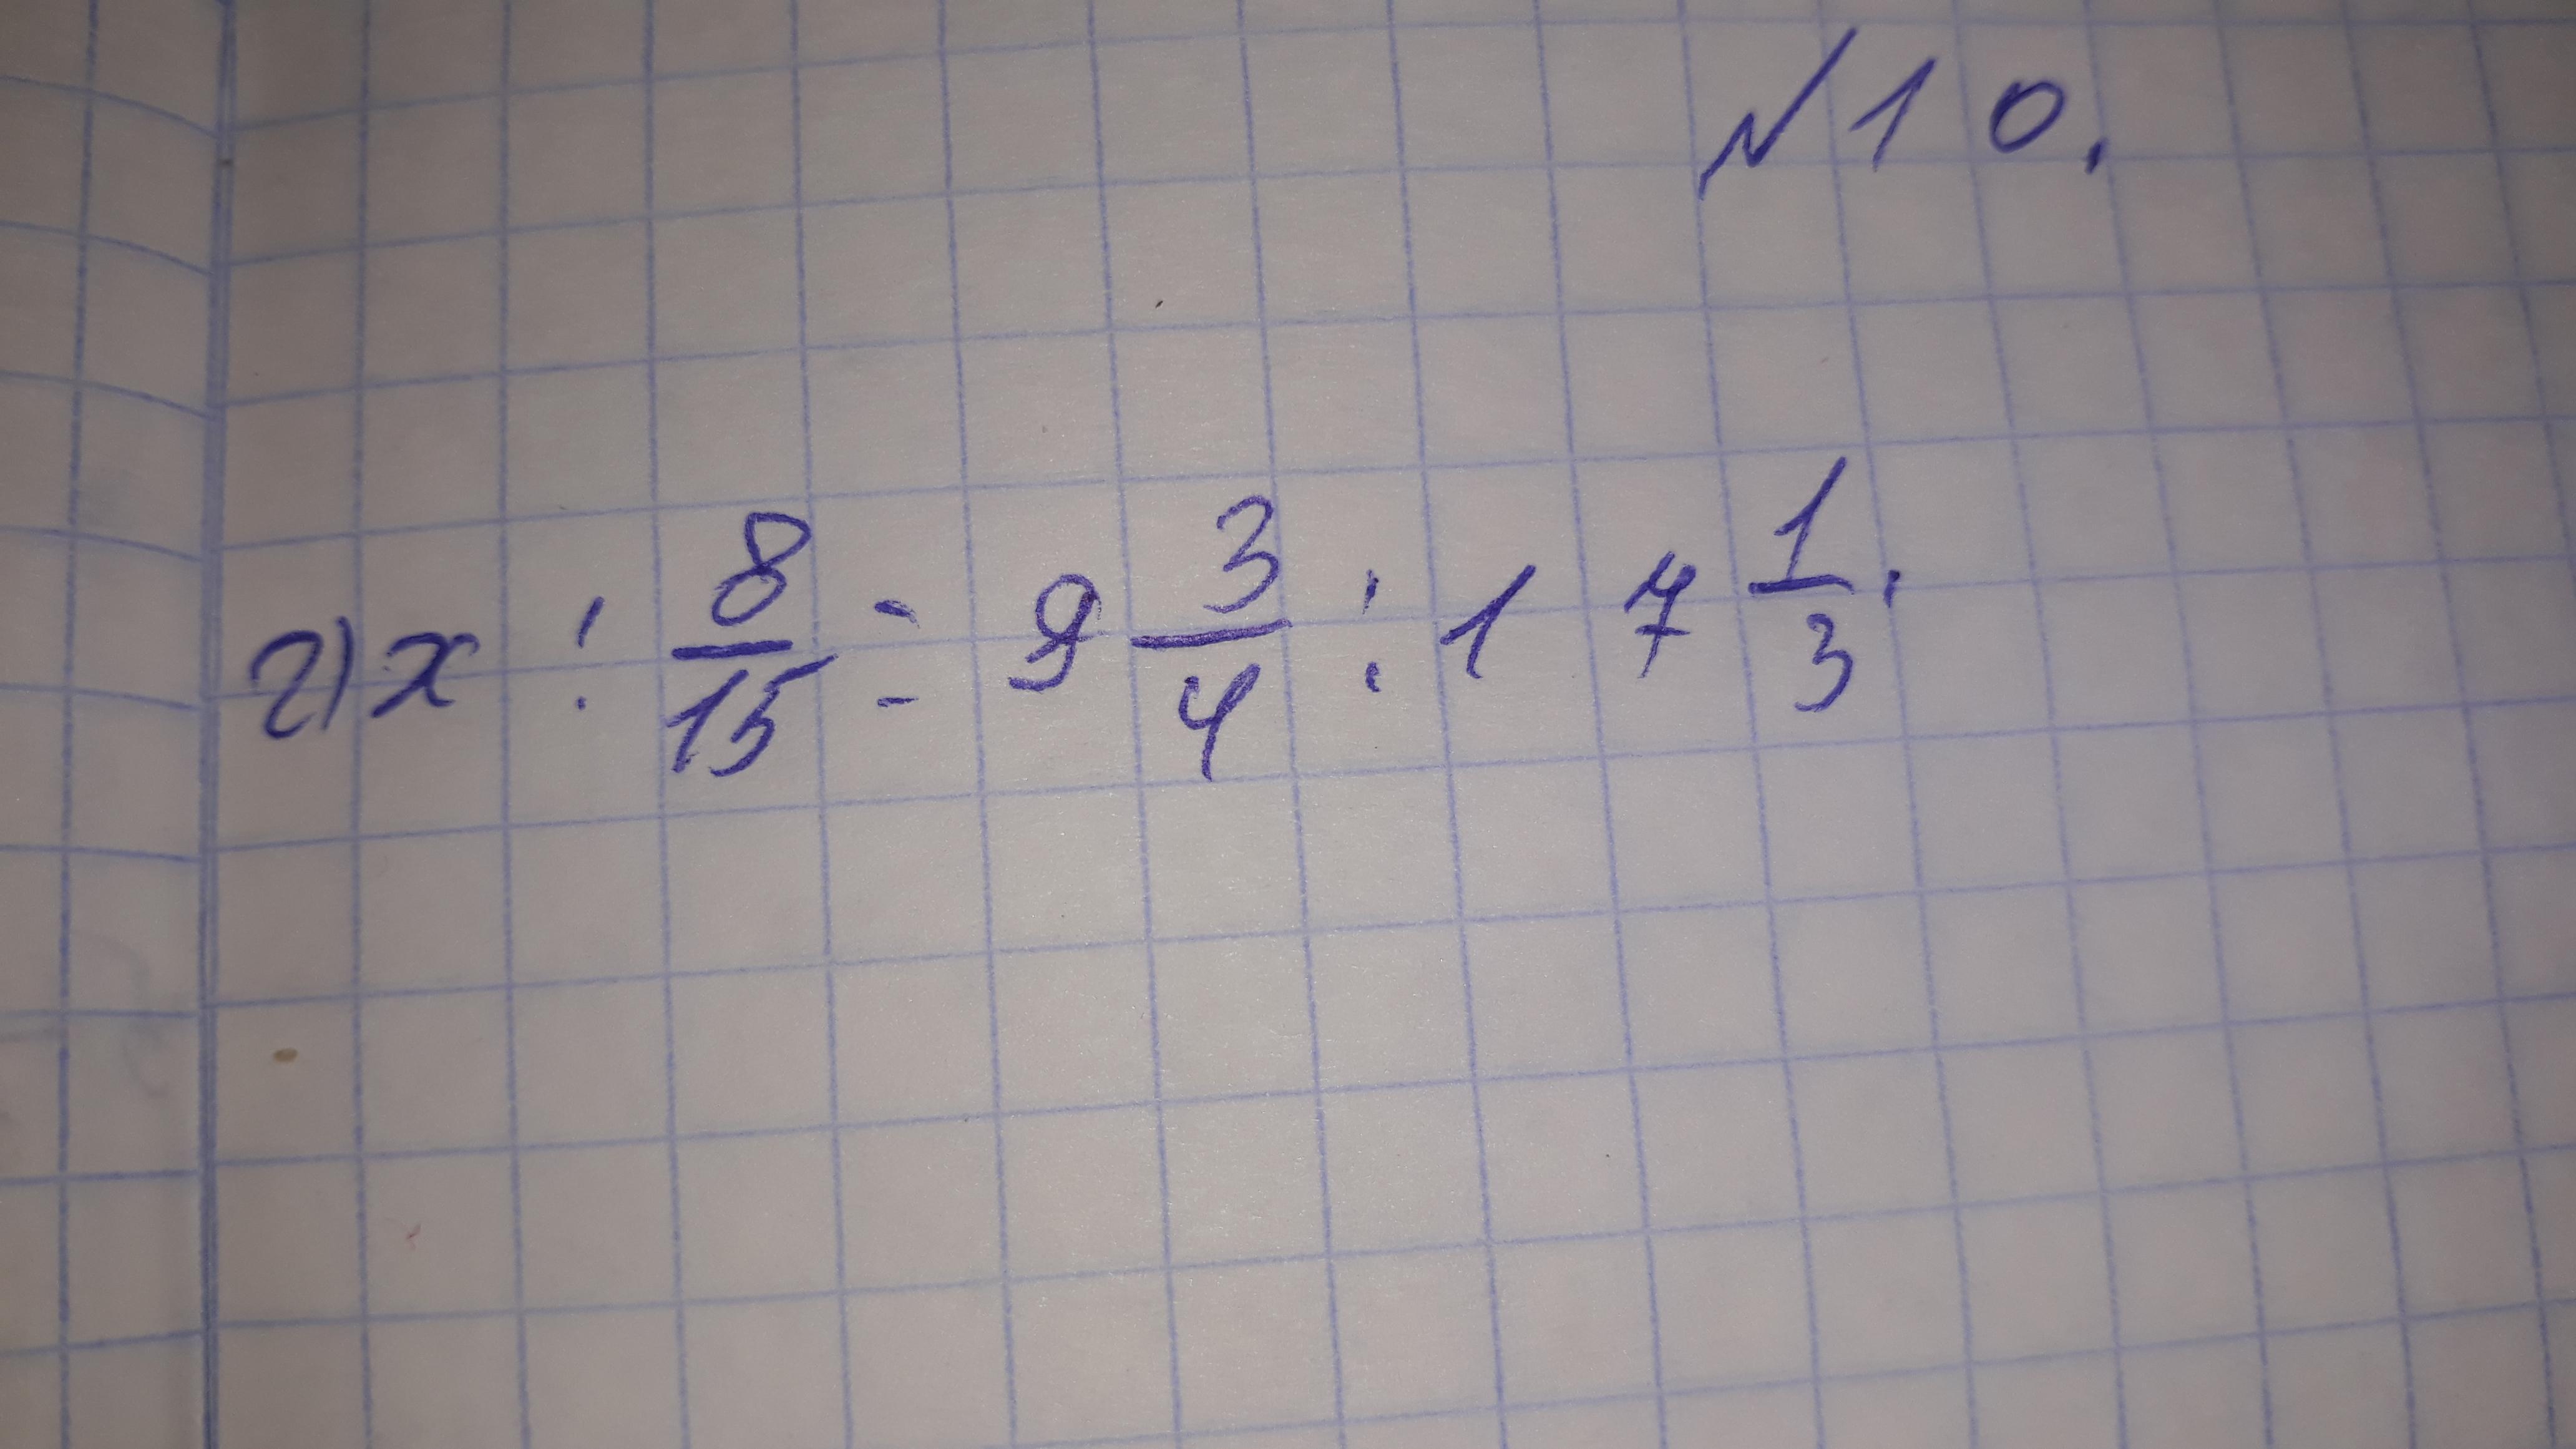 №10.
г) x : 8/15 = 9 3/4 : 17 1/3.